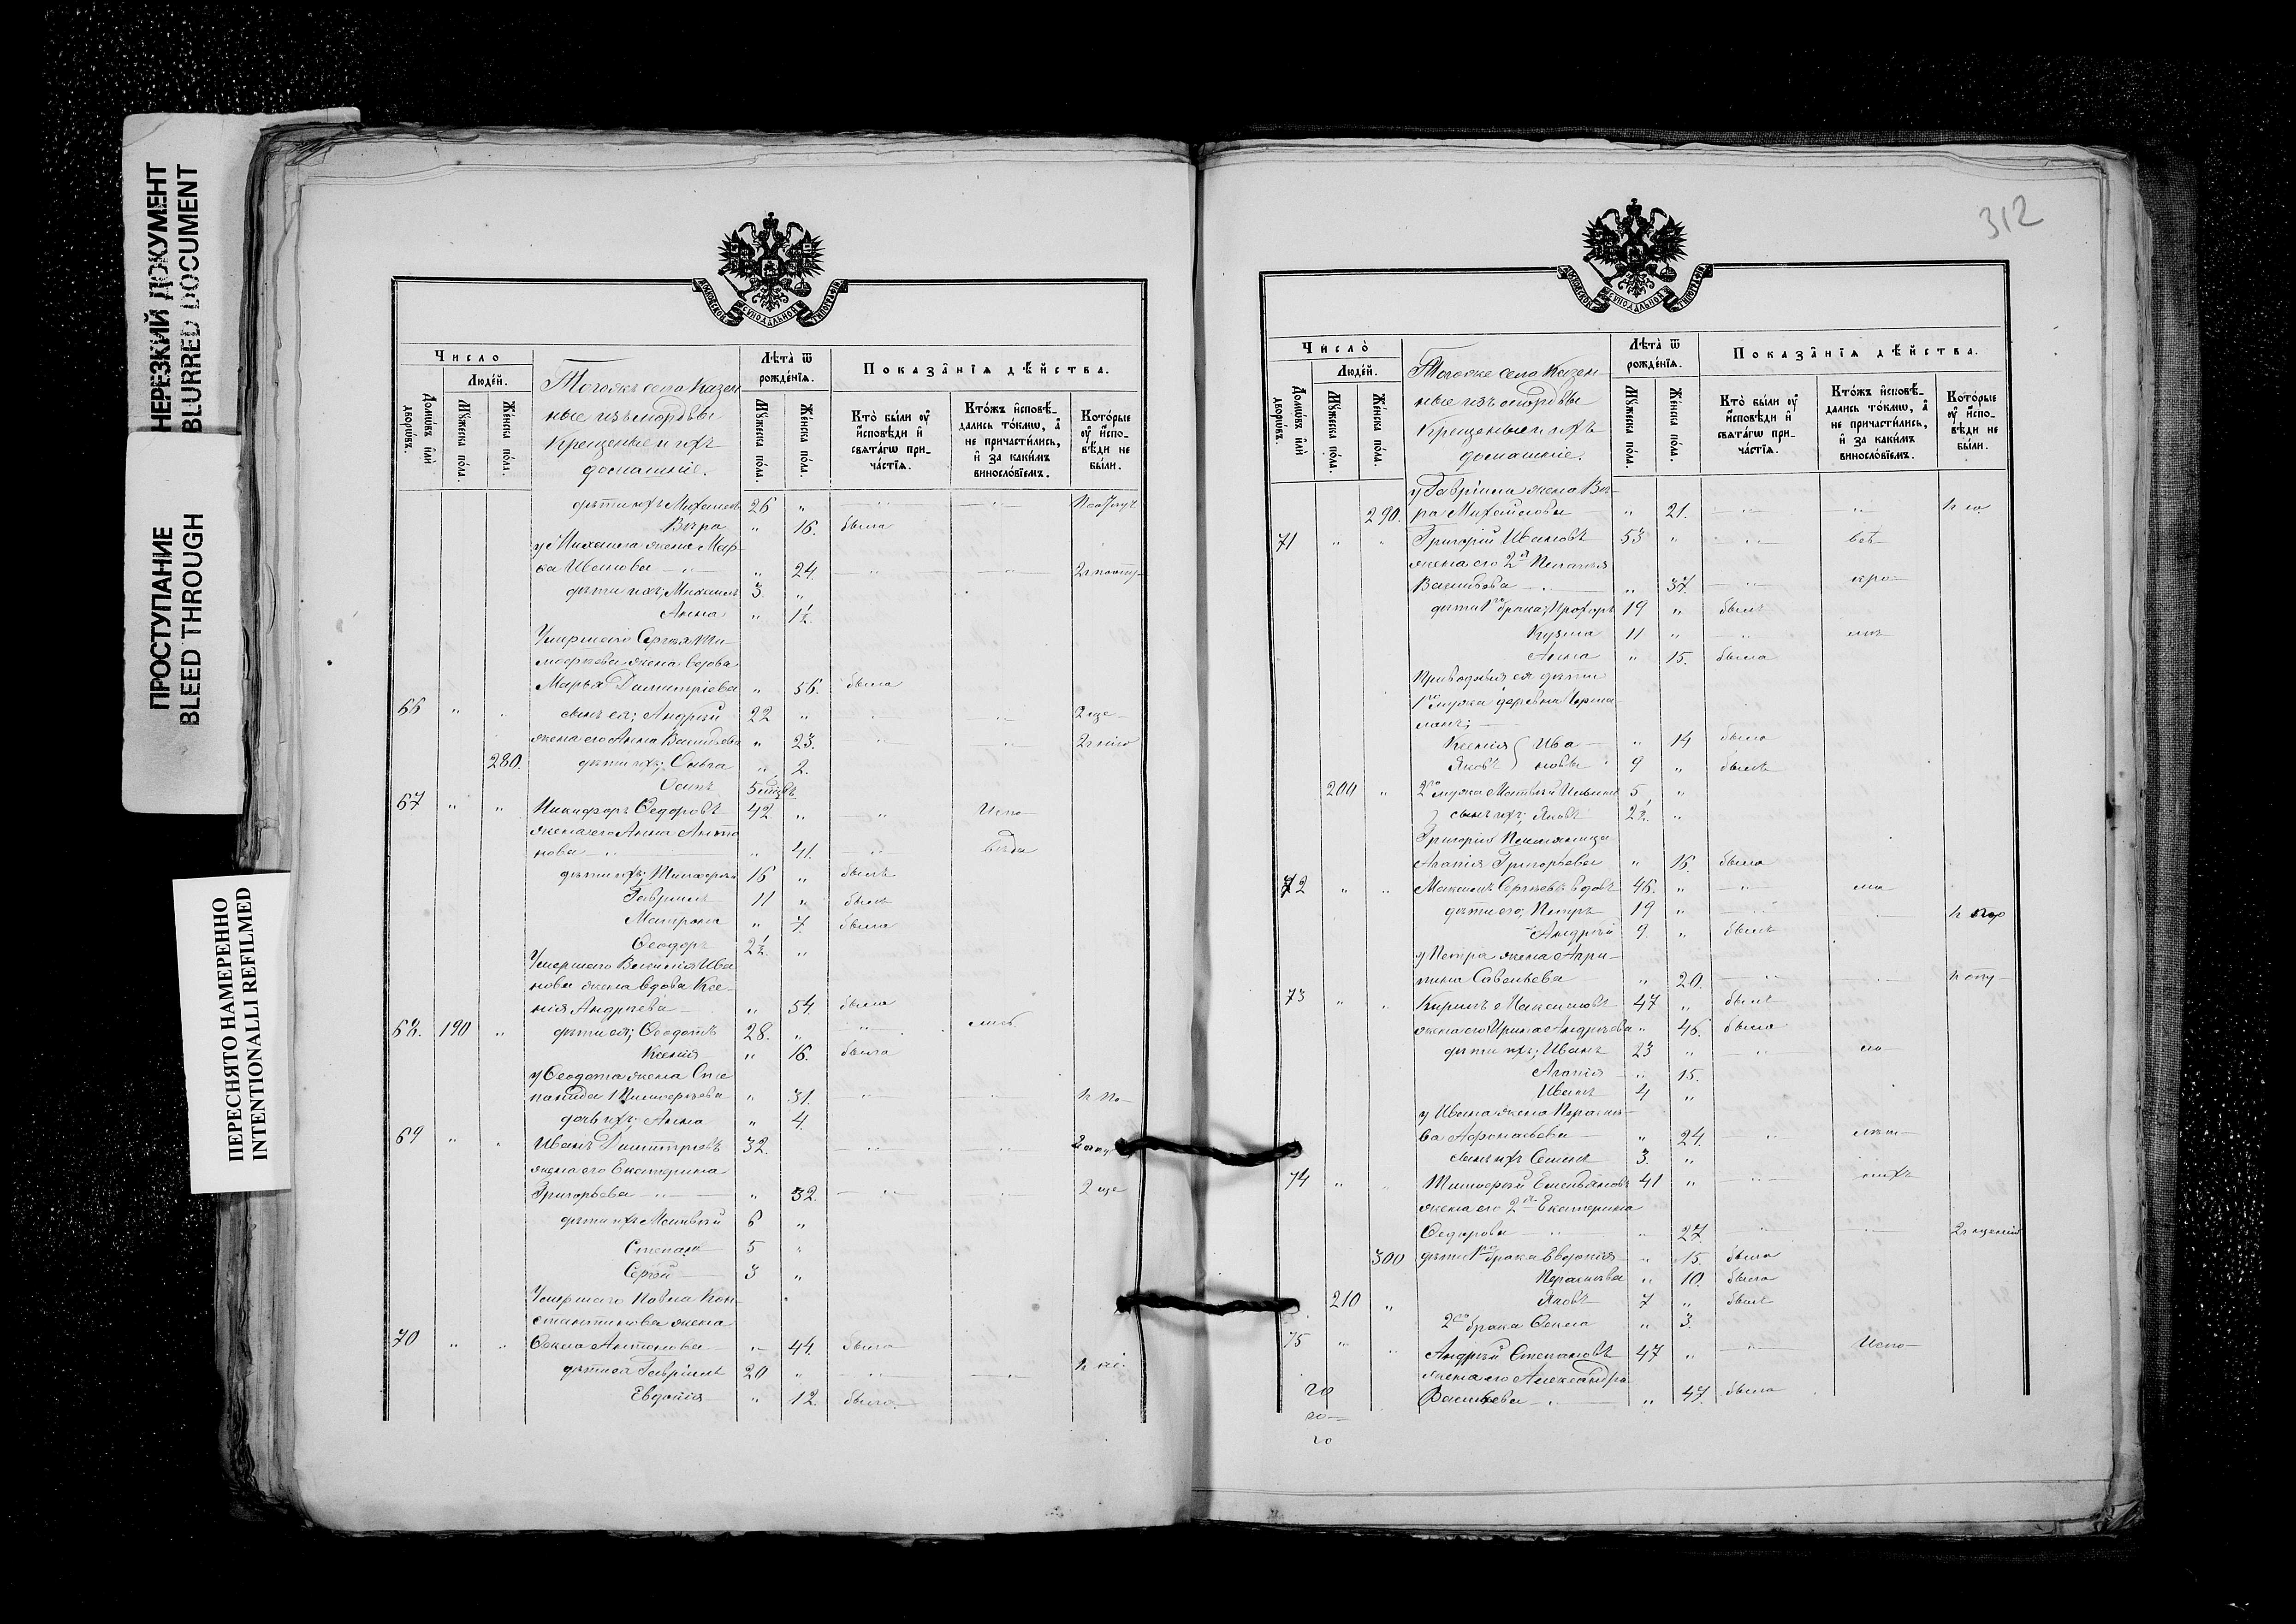 НЕРЕЗКИЙ ДОКУМЕНТ
BLURRED DOCUMENT
ПРОСТУПАНИЕ
BLEED THROUGH
ПЕРЕСНЯТО НАМЕРЕННО
INTENTIONALLI REFILMED
Число
Людей.
Домѡвъ илѝ дворѡвъ.
Мꙋжеска пола.
Женска пола.
Тогожъ села Казен
ные изъ мордвы
Крещенные и ихъ
домашніе.
Лѣта̀ ѿ рожденїѧ.
Мꙋжеска пола.
Женска пола.
Показанїѧ дѣйства.
Кто̀ были оу҆ исповѣди и свѧтагѡ причастїѧ.
Ктожъ исповѣдались токмѡ, а не причастились, и за какимъ винословїемъ.
Которые оу҆ исповѣди не были.
дѣти ихъ Михаилъ 26 "
Вѣра " 16. была
у Михаила жена Мар-
ѳа Иванова " 24.
дѣти ихъ; Михаилъ 3 "
Анна " 1½
Умершего Сергѣя Ти-
моѳеева жена вдова
Марья Димитріева " 56. была
66 " " сынъ ея; Андрей 22 "
жена его Анна Васильева " 23.
280. дѣти ихъ; Ольга " 2.
Осипъ
67 " " Никифоръ Ѳедоровъ 42 " Испо-
жена его Анна Анто
нова " 41. вѣда
дѣти ихъ; Тимоѳей 16 " былъ
Гавріилъ 11 " былъ
Матрона " 7. была
Ѳеодоръ 2½ "
Умершего Василія Ива
нова жена вдова Ксе-
нія Андреева " 54. была
68. 190 " дѣти ея; Ѳеодотъ 28. " лись
Ксенія " 16. была
у Ѳеодота жена Сте
панида Тимоѳеева " 31.
дочь ихъ Анна " 4.
69 " " Иванъ Димитріевъ 32.
жена его Екатерина
Григорьева " 32.
дѣти ихъ Матвѣй 6 "
Степанъ 5 "
Сергѣй 3 "
Умершего Павла Кон-
стантинова жена
70 " " Ѳекла Антонова " 44. была
дѣти ея Гавріилъ 20 "
Евдокія " 12. была
312
Число̀
Людей.
Домѡвъ илѝ дворѡвъ.
Мꙋжеска пола.
Женска пола.
Тогоже села Казен-
ные изъ мордвы
Крещенные и ихъ
домашніе.
Лѣта̀ ѿ рожденїѧ.
Мꙋжеска пола.
Женска пола.
Показанїѧ дѣйства.
Кто̀ были оу҆ исповѣди и свѧтагѡ причастїѧ.
Ктожъ исповѣдались токмѡ, а не причастились, и за какимъ винословїемъ.
Которые оу҆ исповѣди не были.
у Гавріила жена Вѣ-
290. ра Михайлова " 21.
71 " " Григорій Ивановъ 53 "
жена его 2я Пелагея
Васильева " 37.
дѣти 1го брака; Прохоръ 19 " былъ
Кузма 11 "
Анна " 15. была
Приводныя ея дѣти
1го мужа деревни
Ксенія Ива " 14 была
Яковъ новы 9 " былъ
200 " 2го мужа Матвѣй 5 "
сынъ ихъ; Яковъ 2½ "
Григорія Племянница
Агапія Григорьева " 16. была
72 " " Максимъ Сергѣевъ вдовъ 46. "
дѣти его; Петръ 19 "
Андрей 9. " былъ
у Петра жена Агри-
пина Савельева " 20.
73 " " Кирилъ Максимовъ 47 " былъ
жена его Ирина Андреева " 46. была
дѣти ихъ; Иванъ 23 "
Агапія " 15.
Иванъ 4 "
у Ивана жена Параске-
ва Аѳонасьева " 24.
сынъ ихъ Семенъ 3. "
74 " " Тимоѳей Емельяновъ 41 "
жена его 2я Екатерина
Ѳедорова " 27.
300 дѣти 1го брака Евдокія " 15. была
Параскева " 10. была
210 " Яковъ 7 " былъ
2го брака Ѳекла " 3.
75 " " Андрей Степановъ 47 " Испо-
жена его Александра
Васильева " 47. была